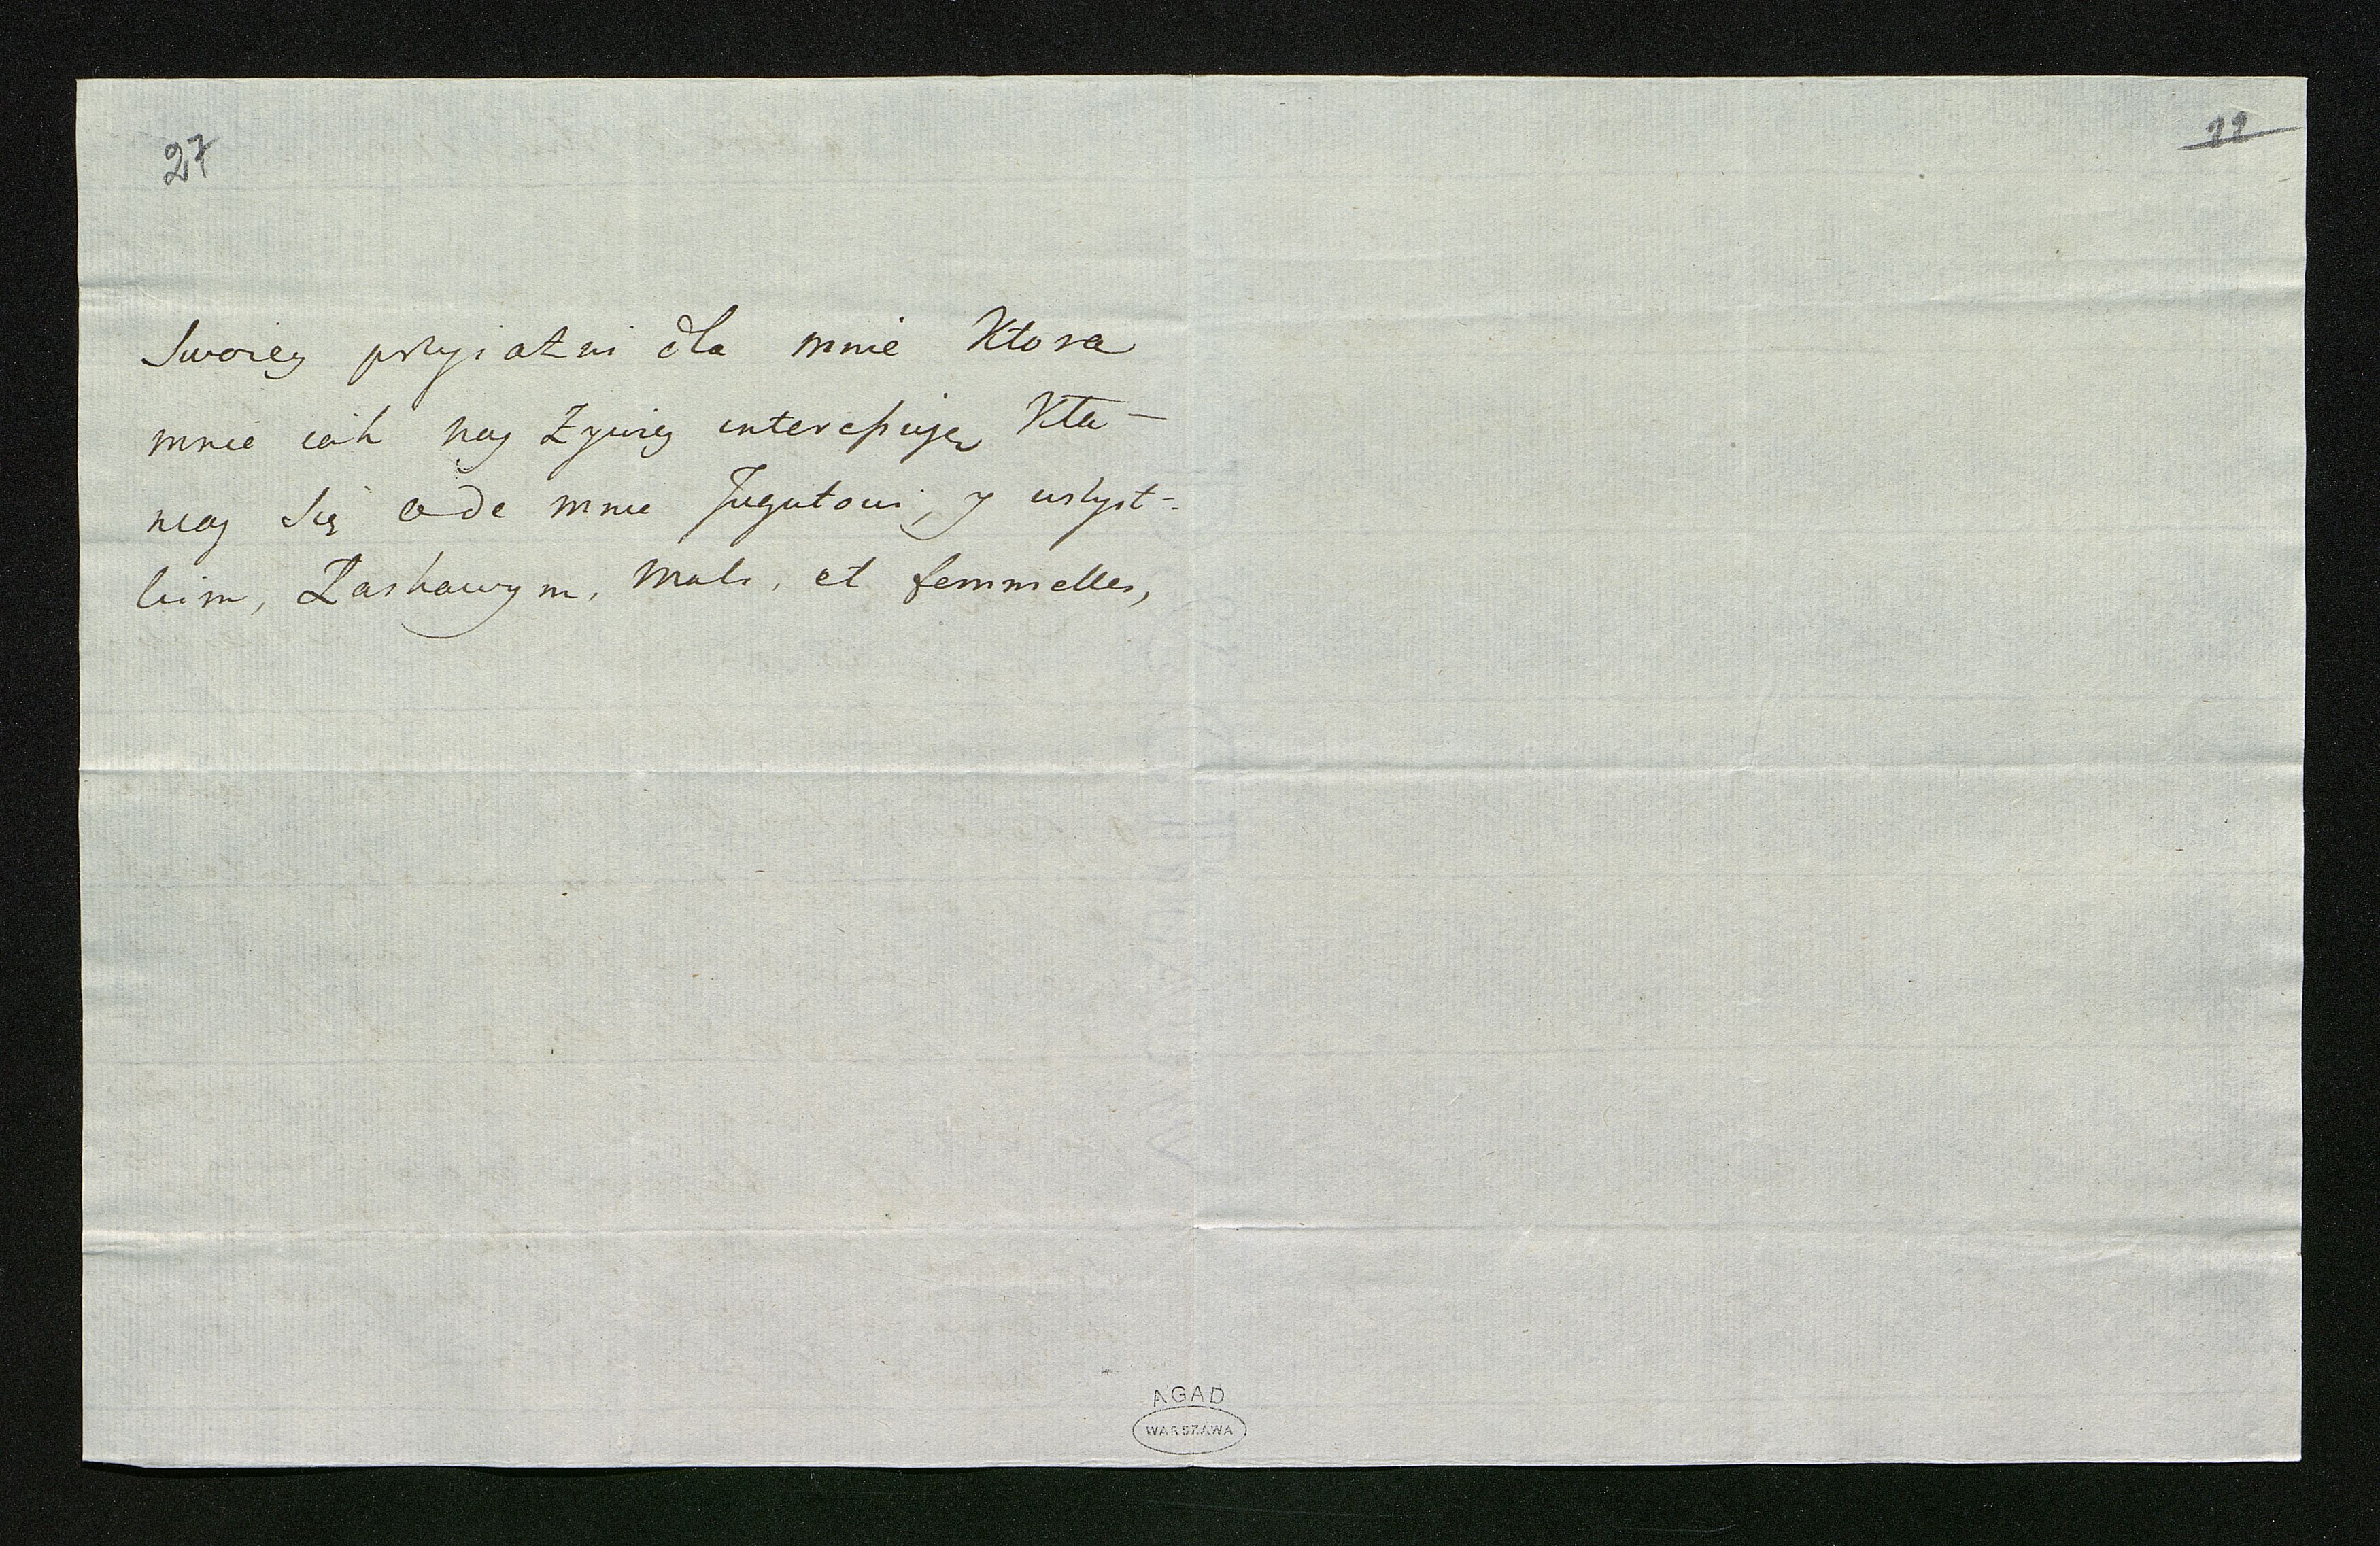 27
22
Swoiey przyiazni dla mnie Ktora
mnie iak nay Zywiey interessuje, Kła-
niay Się ode mnie Jugutowi, y wszyst-
kim, Łaskawym, Mals, et femmelles,
AGAD
WARSZAWA